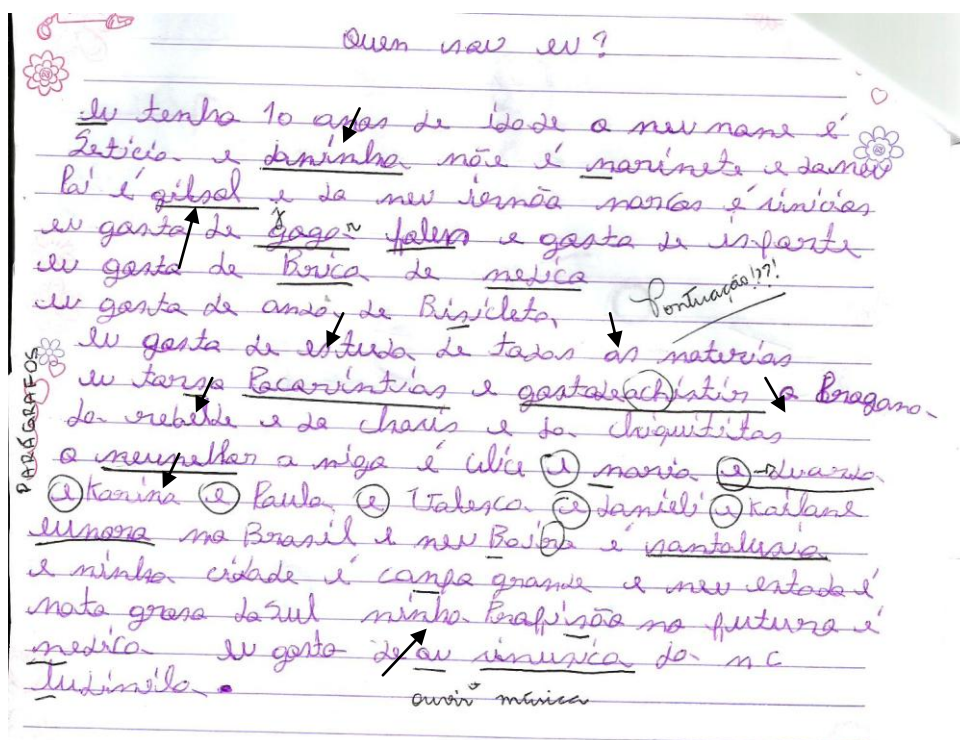 Quen sou eu?
eu tenho 10 anos de idade o meu nome é
Leticia e daminha mãe é marinete e do meu
Pai é gilsol e do meu irmão marcos é vinicios
eu gosto de gogar falem e gosto de isporte
eu gosto de Brica de medica
Pontuação!??!
eu gosto de andó de Bisicleta,
eu gosto de estuda de todas as materias
eu torso Pacorintias e gostodeachistir o Programa
do rebelde e do chavis e do chiquititas
PARÁGRAFOS
o meumelhor a miga é Alice e maria e duarda
e Karina e Paula e Valesca e danieli e Kailane
eumoro no Brasil e meu Bairo é santalusia
e minha cidade é canpo grande e meu estado é
mato groso do Sul minha Profisão no futuro é
medica eu gosto de ou vimusica da mc
ludimila.
ouvir música